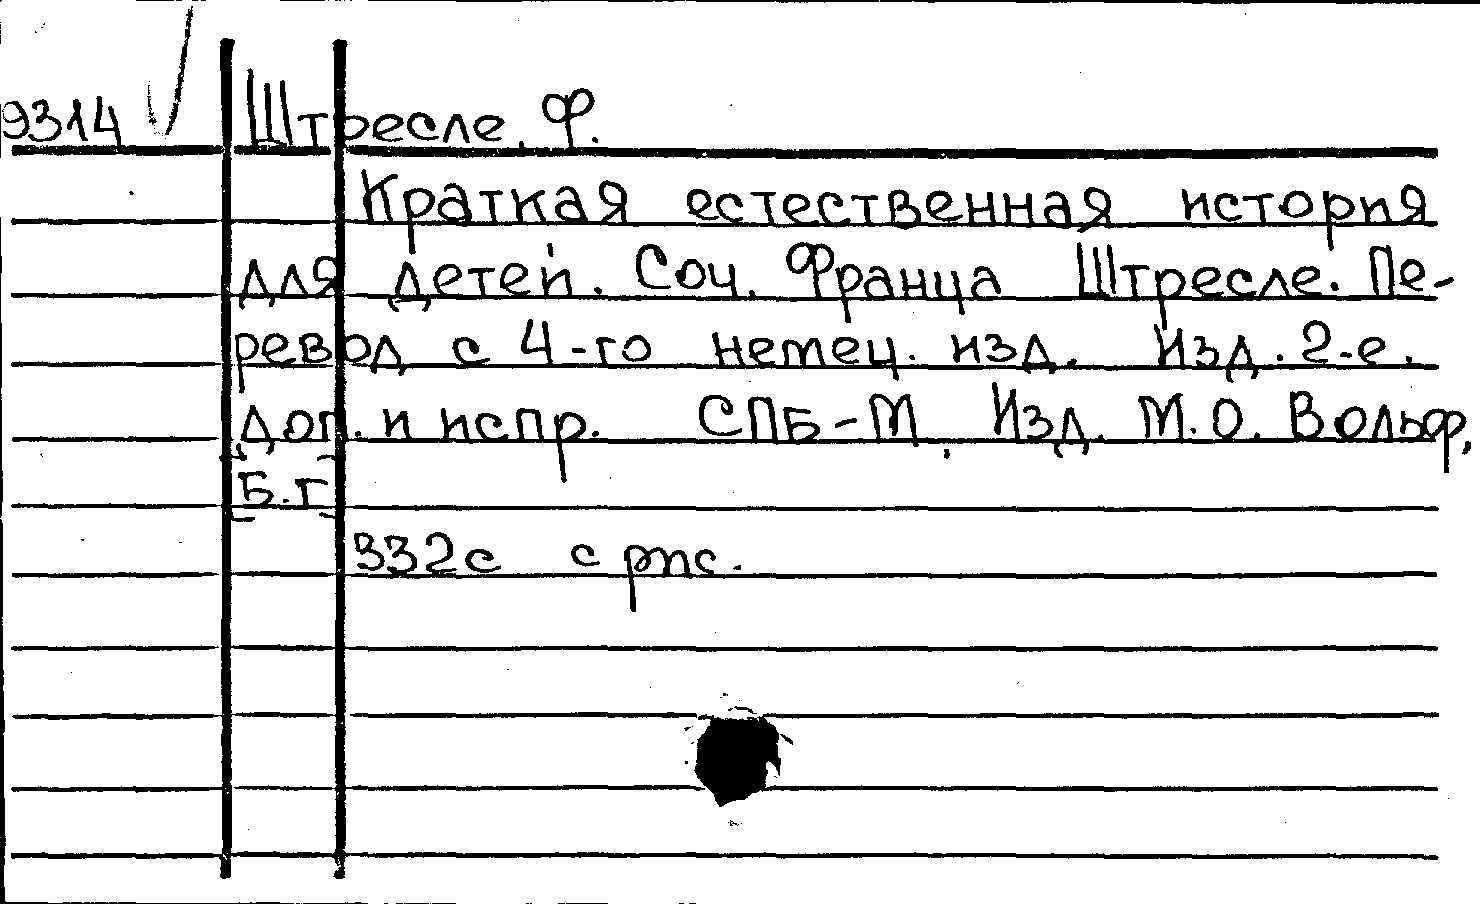 9314 Штресле, Ф.
Краткая естественная история
для детей. Соч. Франца Штресле. Пе-
ревод с 4-го немец. изд. Изд. 2-е.
доп. и испр. СПБ-М, Изд. М.О. Вольф,
[Б.г.]
332с с рис.